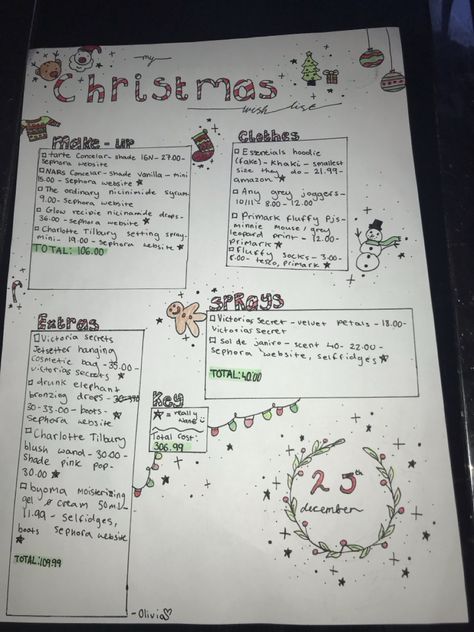 my
Christmas
wish list
Make-up
tarte Concelar-shade 16N-27.00-
Sephora website
NARS Concelar-Shade Vanilla-mini
15.00-Sephora website ★
The ordinary nicinimide syrum-
9.00-Sephora website
Glow recipie nicinamide drops-
36.00-sephora website ★
Charlotte Tilbury setting spray-
mini-19.00-Sephora website ★
TOTAL: 106.00
Clothes
Essentials hoodie
(fake)-Khaki-smallest
size they do-21.99-
amazon ★
Any grey joggers-
10/11-8.00-12.00
Primark fluffy Pjs-
Minnie mouse/grey
leopard print-12.00-
primark ★
Fluffy socks-3.00-
tesco, primark ★
Sprays
Victorias Secret-velvet petals-18.00-
Victorias Secret
Sol de janiro-scent 40-22.00-
Sephora website, selfridges ★
TOTAL: 40.00
Extras
Victoria secrets
Jetsetter hanging
cosmetic bag-35.00-
victorias secrets ★
drunk elephant
bronzing drops-
30-33.00-boots-★
Sephora website
Charlotte Tilbury
blush wand-30.00-
Shade pink pop-
30.00 ★
byoma moisterizing
gel cream 50ml-
11.99-selfidges,
boots sephora website
★
TOTAL: 109.99
Key
★=really
want
Total cost:
306.99
25th
december
-Olivia♡